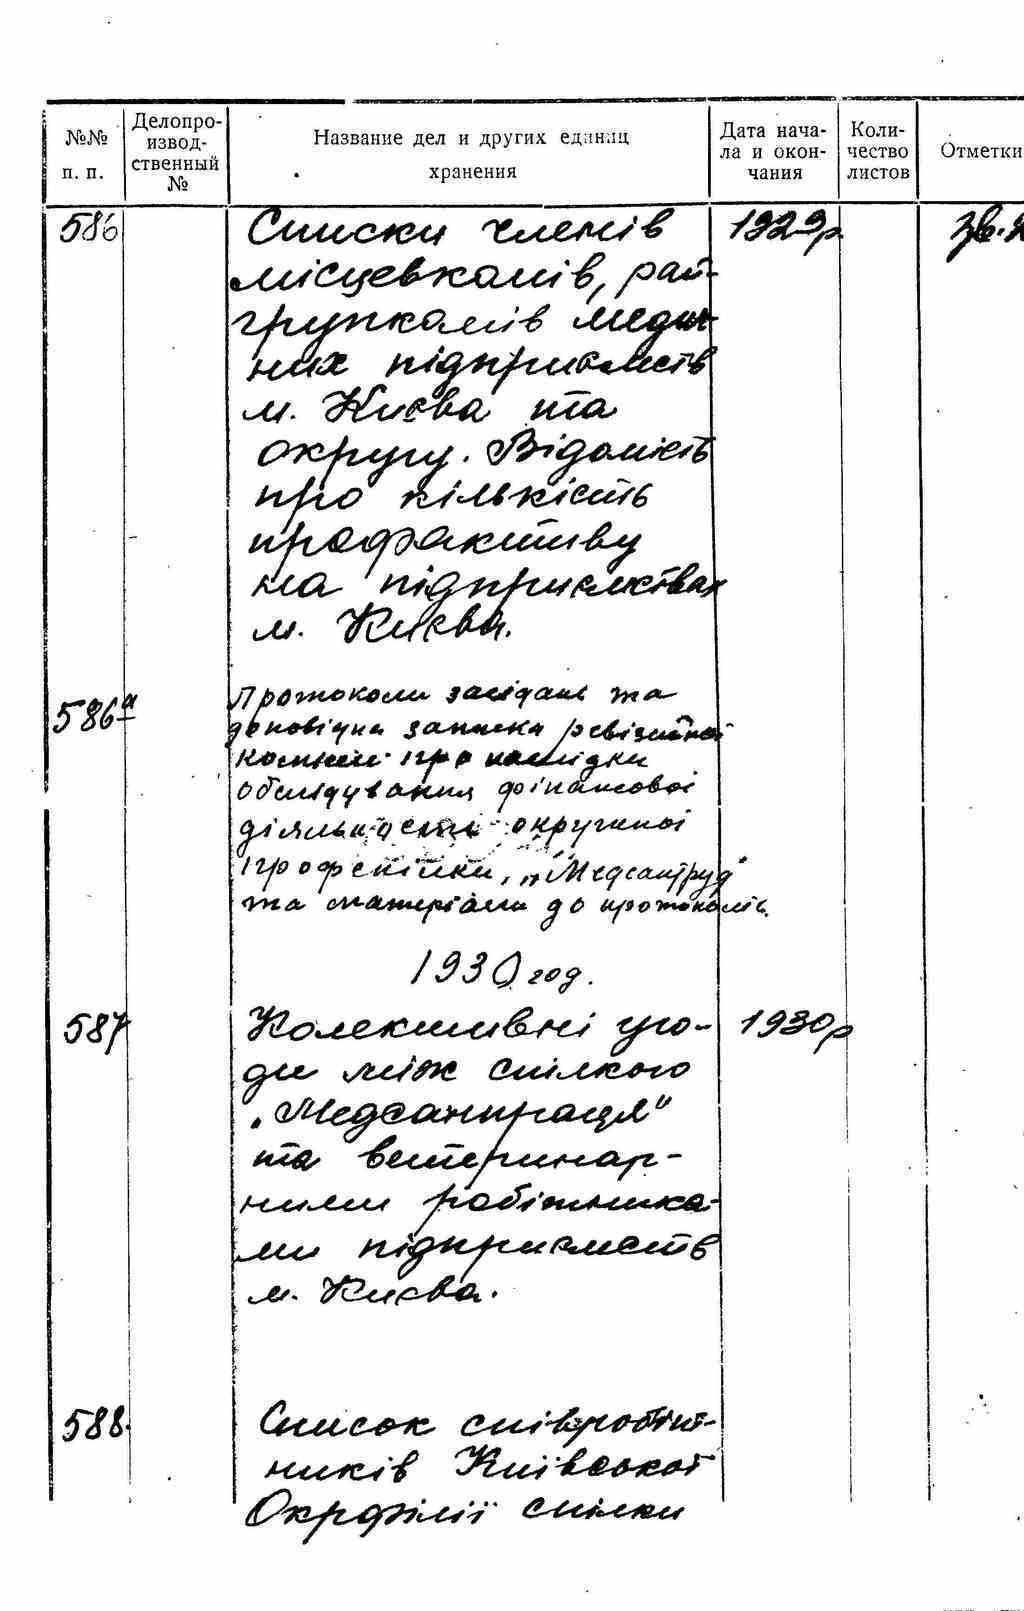 №№ п. п.
Делопро-
извод-
ственный
№
Название дел и других единиц
хранения
Дата нача-
ла и окон-
чания
Коли-
чество
листов
Отметки
586 Списки членів 1929р.
місцевкомів, рай-
групкомів медич-
них підприємств
м. Києва та
округу. Відомість
про кількість
профактиву
на підприємствах
м. Києва.
586а Протоколи засідань та
доповідна записка ревізійної
комісії про наслідки
обслідування фінансової
діяльності окружної
профспілки „Медсантруд"
та матеріали до протоколів.
1930 год.
587 Колективні уго- 1930р
ди між спілкою
„Медсанпраця"
та ветеринар-
ними робітника-
ми підприємств
м. Києва.
588. Список співробіт-
ників Київської
Окрфілії спілки